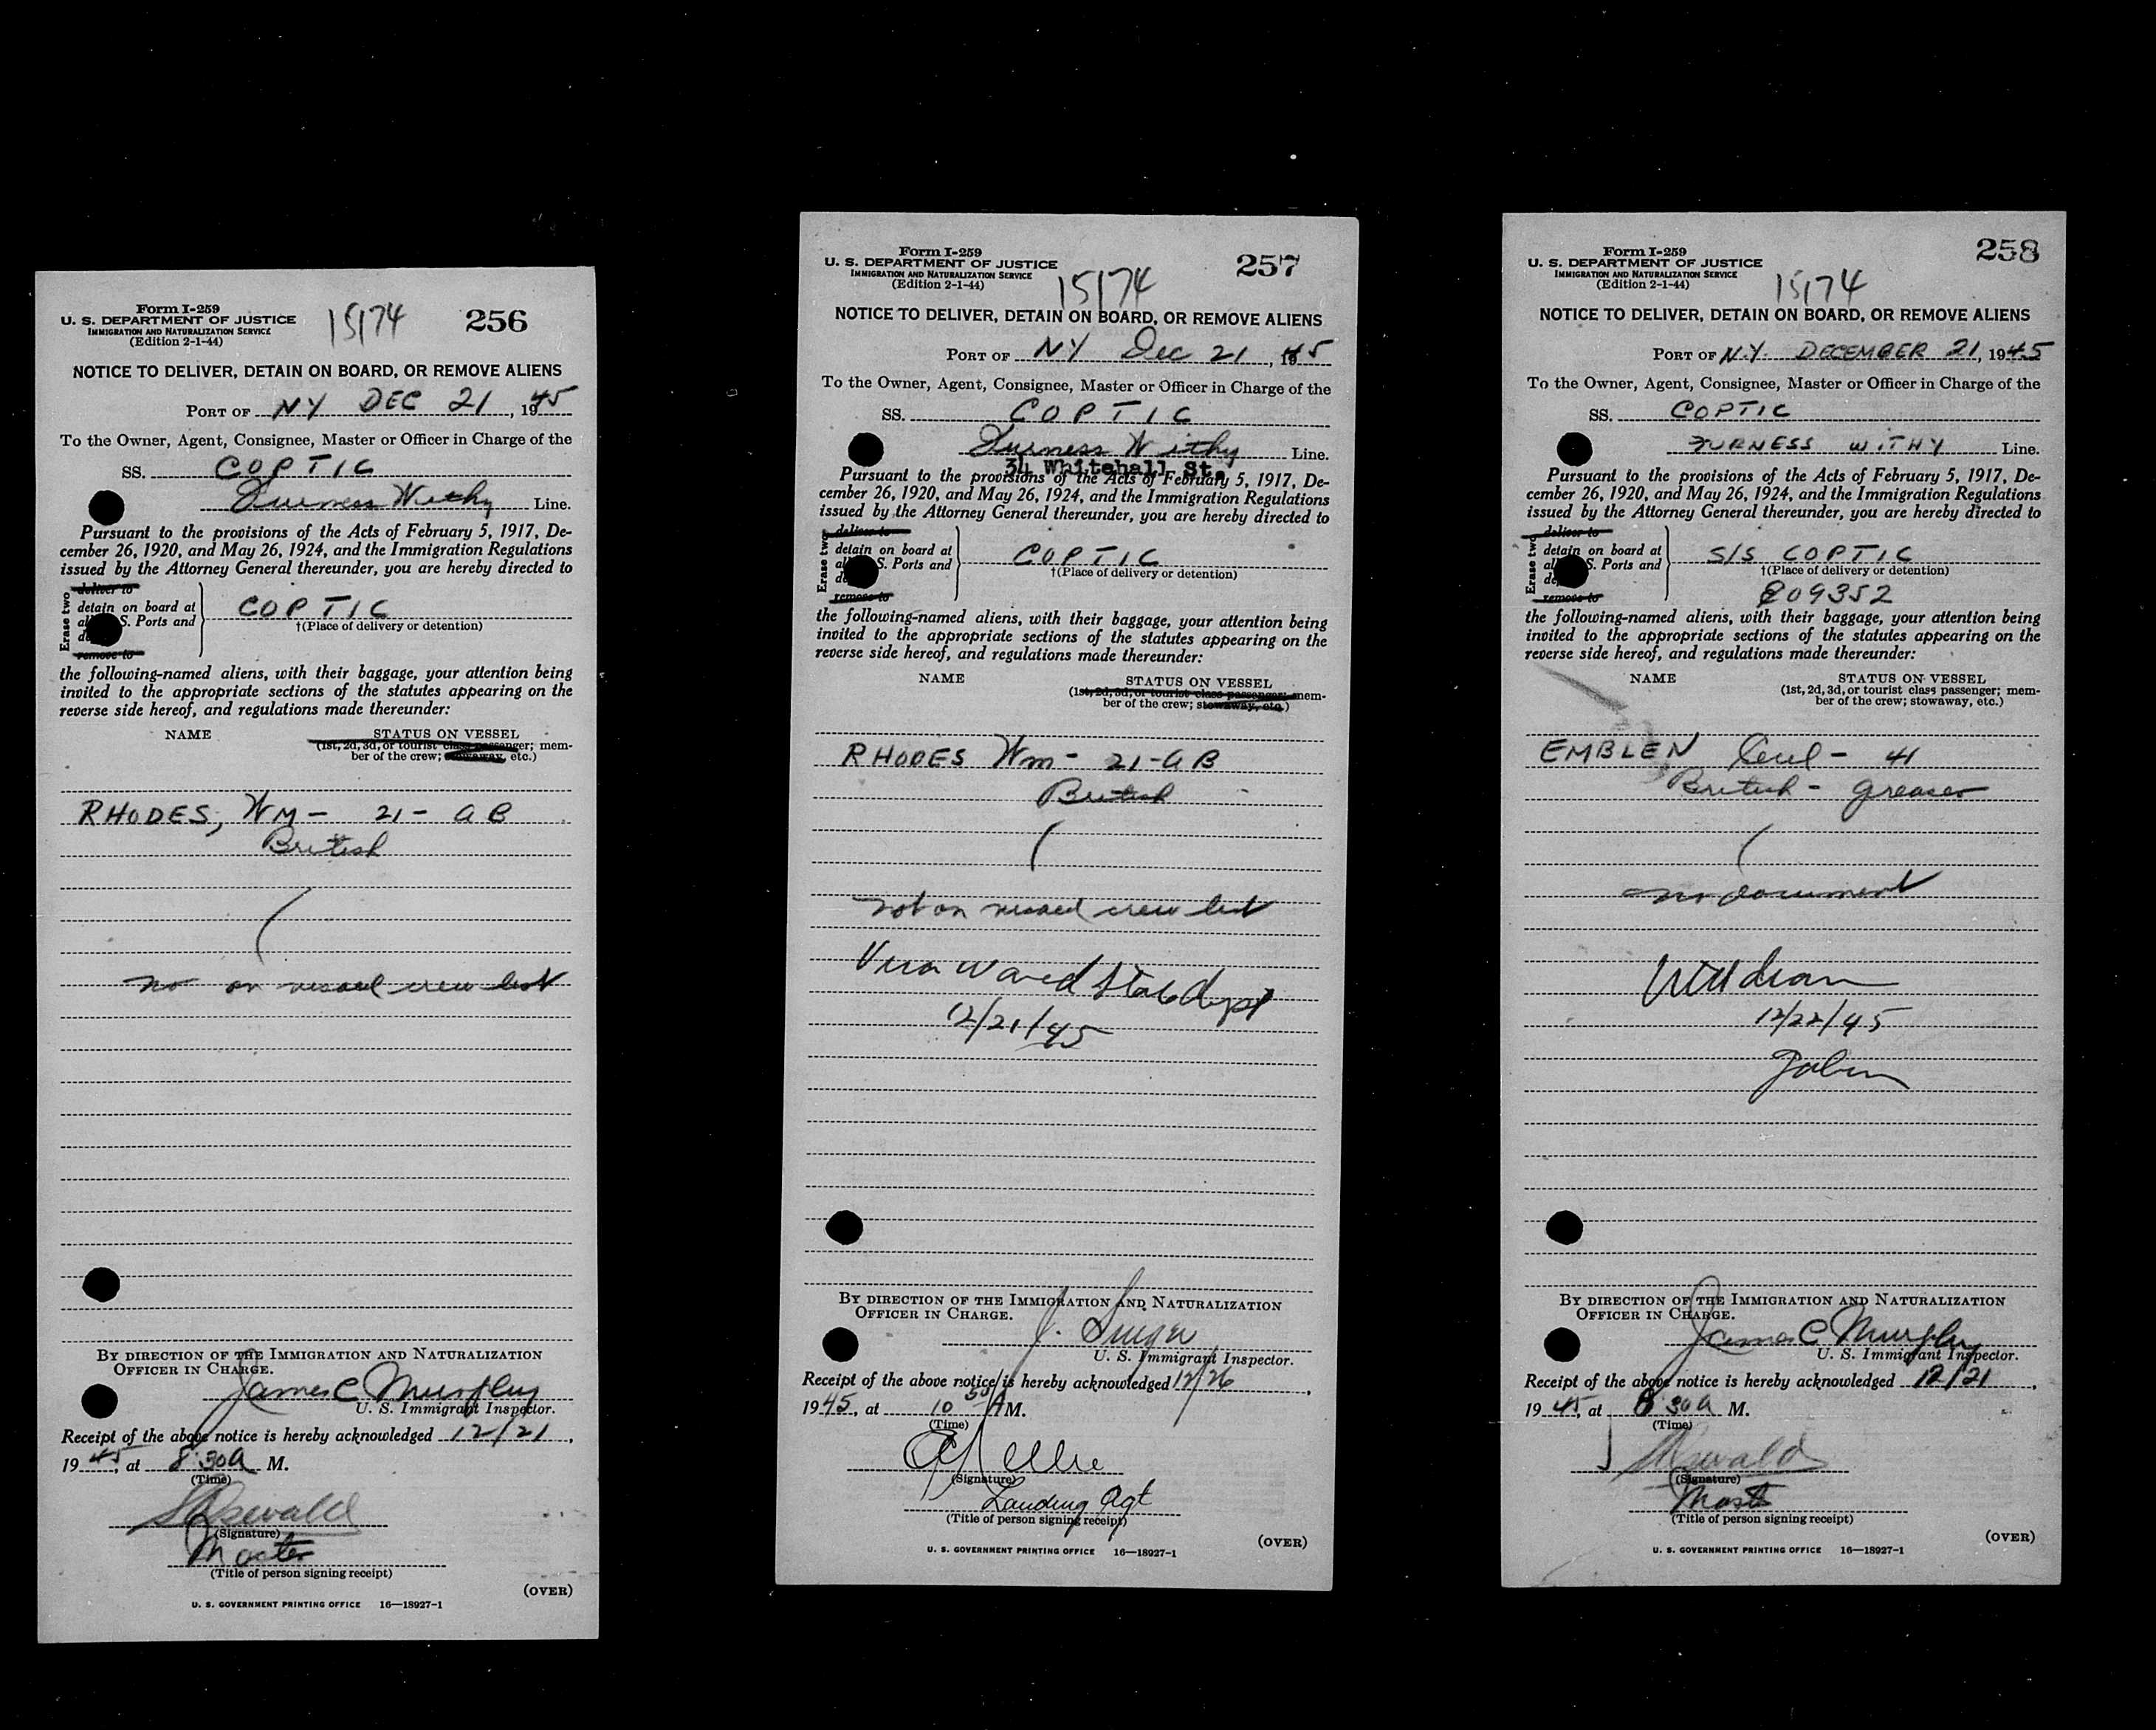 Form I-259
U. S. DEPARTMENT OF JUSTICE
IMMIGRATION AND NATURALIZATION SERVICE
(Edition 2-1-44)
15174
256
NOTICE TO DELIVER, DETAIN ON BOARD, OR REMOVE ALIENS
PORT OF NY DEC 21, 1945
To the Owner, Agent, Consignee, Master or Officer in Charge of the
SS. COPTIC
Furness Withy Line.
Pursuant to the provisions of the Acts of February 5, 1917, De-
cember 26, 1920, and May 26, 1924, and the Immigration Regulations
issued by the Attorney General thereunder, you are hereby directed to
Erase two
deliver to
detain on board at
S. Ports and
remove to
COPTIC
†(Place of delivery or detention)
the following-named aliens, with their baggage, your attention being
invited to the appropriate sections of the statutes appearing on the
reverse side hereof, and regulations made thereunder:
NAME STATUS ON VESSEL
(1st, 2d, 3d, or tourist class passenger; mem-
ber of the crew; stowaway, etc.)
RHODES, WM - 21 - AB
British
no on visaed crew list
BY DIRECTION OF THE IMMIGRATION AND NATURALIZATION
OFFICER IN CHARGE.
James C Murphy
U. S. Immigrant Inspector.
Receipt of the above notice is hereby acknowledged 12/21,
1945, at 8:30A M.
(Time)
Oswald
(Signature)
Master
(Title of person signing receipt)
(OVER)
U. S. GOVERNMENT PRINTING OFFICE 16—18927-1
Form I-259
U. S. DEPARTMENT OF JUSTICE
IMMIGRATION AND NATURALIZATION SERVICE
(Edition 2-1-44)
15174
257
NOTICE TO DELIVER, DETAIN ON BOARD, OR REMOVE ALIENS
PORT OF NY Dec 21, 1945
To the Owner, Agent, Consignee, Master or Officer in Charge of the
SS. COPTIC
Furness Withy Line.
34 Whitehall St.
Pursuant to the provisions of the Acts of February 5, 1917, De-
cember 26, 1920, and May 26, 1924, and the Immigration Regulations
issued by the Attorney General thereunder, you are hereby directed to
Erase two
deliver to
detain on board at
S. Ports and
remove to
COPTIC
†(Place of delivery or detention)
the following-named aliens, with their baggage, your attention being
invited to the appropriate sections of the statutes appearing on the
reverse side hereof, and regulations made thereunder:
NAME STATUS ON VESSEL
(1st, 2d, 3d, or tourist class passenger; mem-
ber of the crew; stowaway, etc.)
RHODES Wm - 21 - AB
British
not on visaed crew list
Visa waived State Dept
12/21/45
BY DIRECTION OF THE IMMIGRATION AND NATURALIZATION
OFFICER IN CHARGE.
J. Singer
U. S. Immigrant Inspector.
Receipt of the above notice is hereby acknowledged 12/26,
1945, at 10 50 A M.
(Time)
(Signature)
Landing Agt
(Title of person signing receipt)
(OVER)
U. S. GOVERNMENT PRINTING OFFICE 16—18927-1
Form I-259
U. S. DEPARTMENT OF JUSTICE
IMMIGRATION AND NATURALIZATION SERVICE
(Edition 2-1-44)
15174
258
NOTICE TO DELIVER, DETAIN ON BOARD, OR REMOVE ALIENS
PORT OF N.Y. DECEMBER 21, 1945
To the Owner, Agent, Consignee, Master or Officer in Charge of the
SS. COPTIC
FURNESS WITHY Line.
Pursuant to the provisions of the Acts of February 5, 1917, De-
cember 26, 1920, and May 26, 1924, and the Immigration Regulations
issued by the Attorney General thereunder, you are hereby directed to
Erase two
deliver to
detain on board at
S. Ports and
remove to
S/S COPTIC
†(Place of delivery or detention)
809352
the following-named aliens, with their baggage, your attention being
invited to the appropriate sections of the statutes appearing on the
reverse side hereof, and regulations made thereunder:
NAME STATUS ON VESSEL
(1st, 2d, 3d, or tourist class passenger; mem-
ber of the crew; stowaway, etc.)
EMBLEN Cecil - 41
British - Greaser
no document
12/22/45
BY DIRECTION OF THE IMMIGRATION AND NATURALIZATION
OFFICER IN CHARGE.
James C Murphy
U. S. Immigrant Inspector.
Receipt of the above notice is hereby acknowledged 12/21,
1945, at 8:30A M.
(Time)
Oswald
(Signature)
Mast
(Title of person signing receipt)
(OVER)
U. S. GOVERNMENT PRINTING OFFICE 16—18927-1